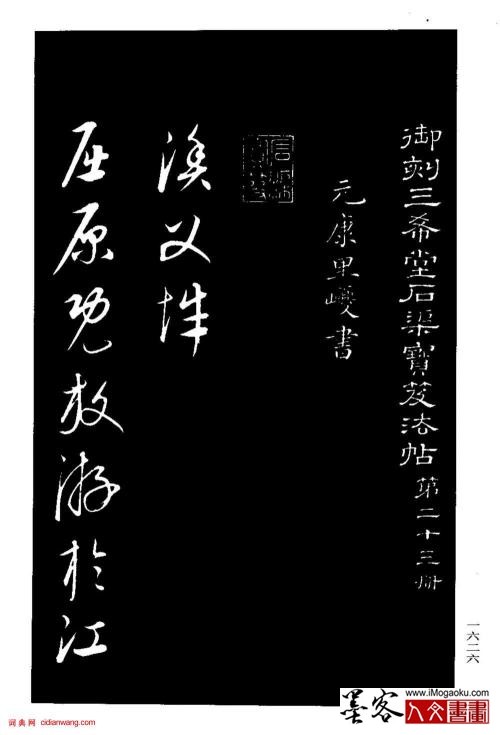 御刻三希堂石渠寶笈法帖第二十三冊
元康里巙書
漁父辭
屈原既放游於江
一六二六
www.iMogaoku.com
墨客人文書畫
词典网 cidianwang.com